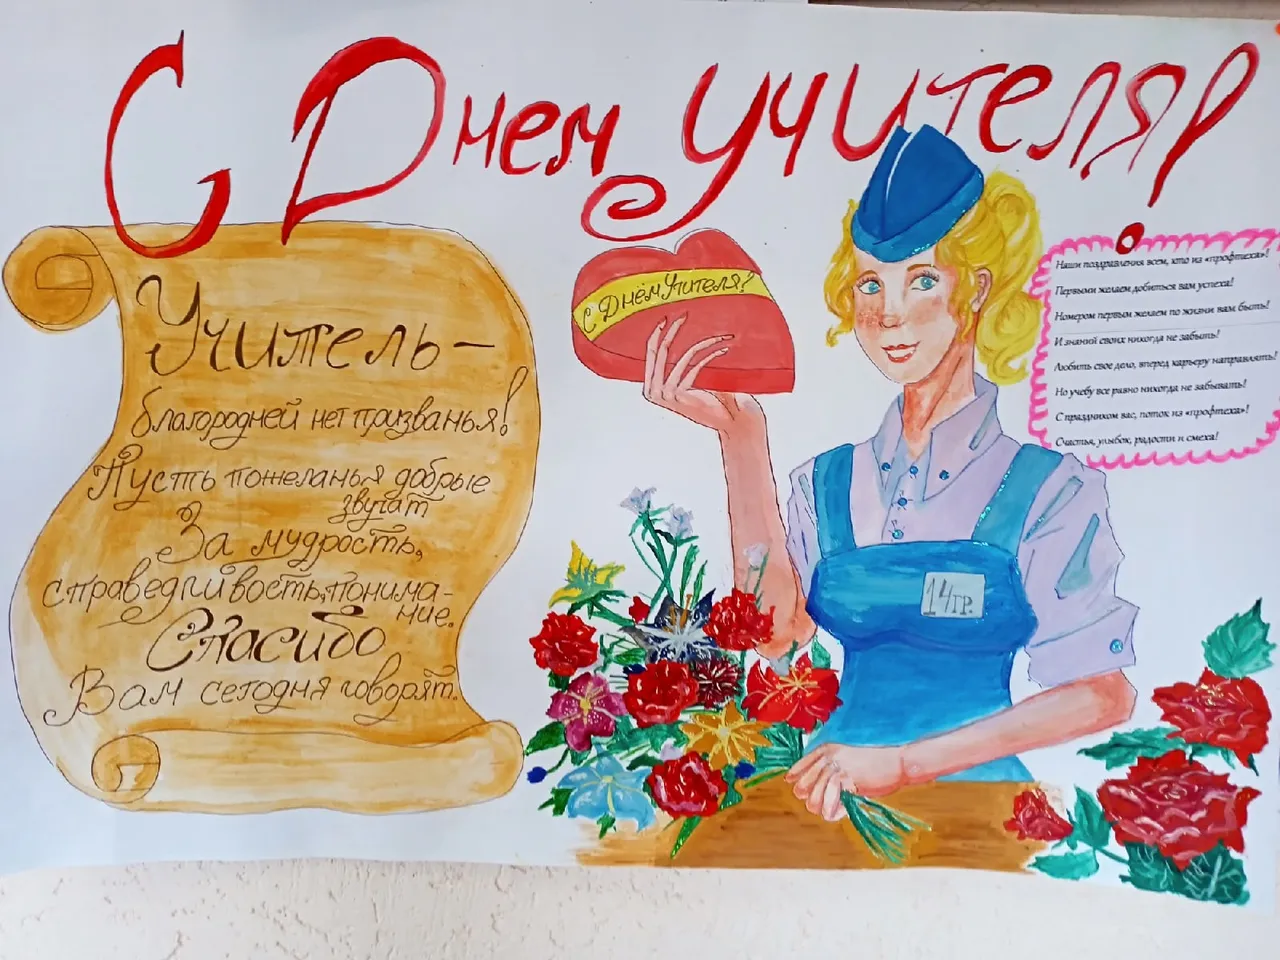 С Днем учителя!
Учитель-
благородней нет призванья!
Пусть пожеланья добрые
звучат
За мудрость,
справедливость, понима-
ние.
Спасибо
Вам сегодня говорят.
С Днём Учителя!
14гр.
Наши поздравления всем, кто из «профтеха»!
Первыми желаем добиться вам успеха!
Номером первым желаем по жизни вам быть!
И знаний своих никогда не забыть!
Любить свое дело, вперед карьеру направлять!
Но учебу все равно никогда не забывать!
С праздником вас, поток из «профтеха»!
Счастья, улыбок, радости и смеха!